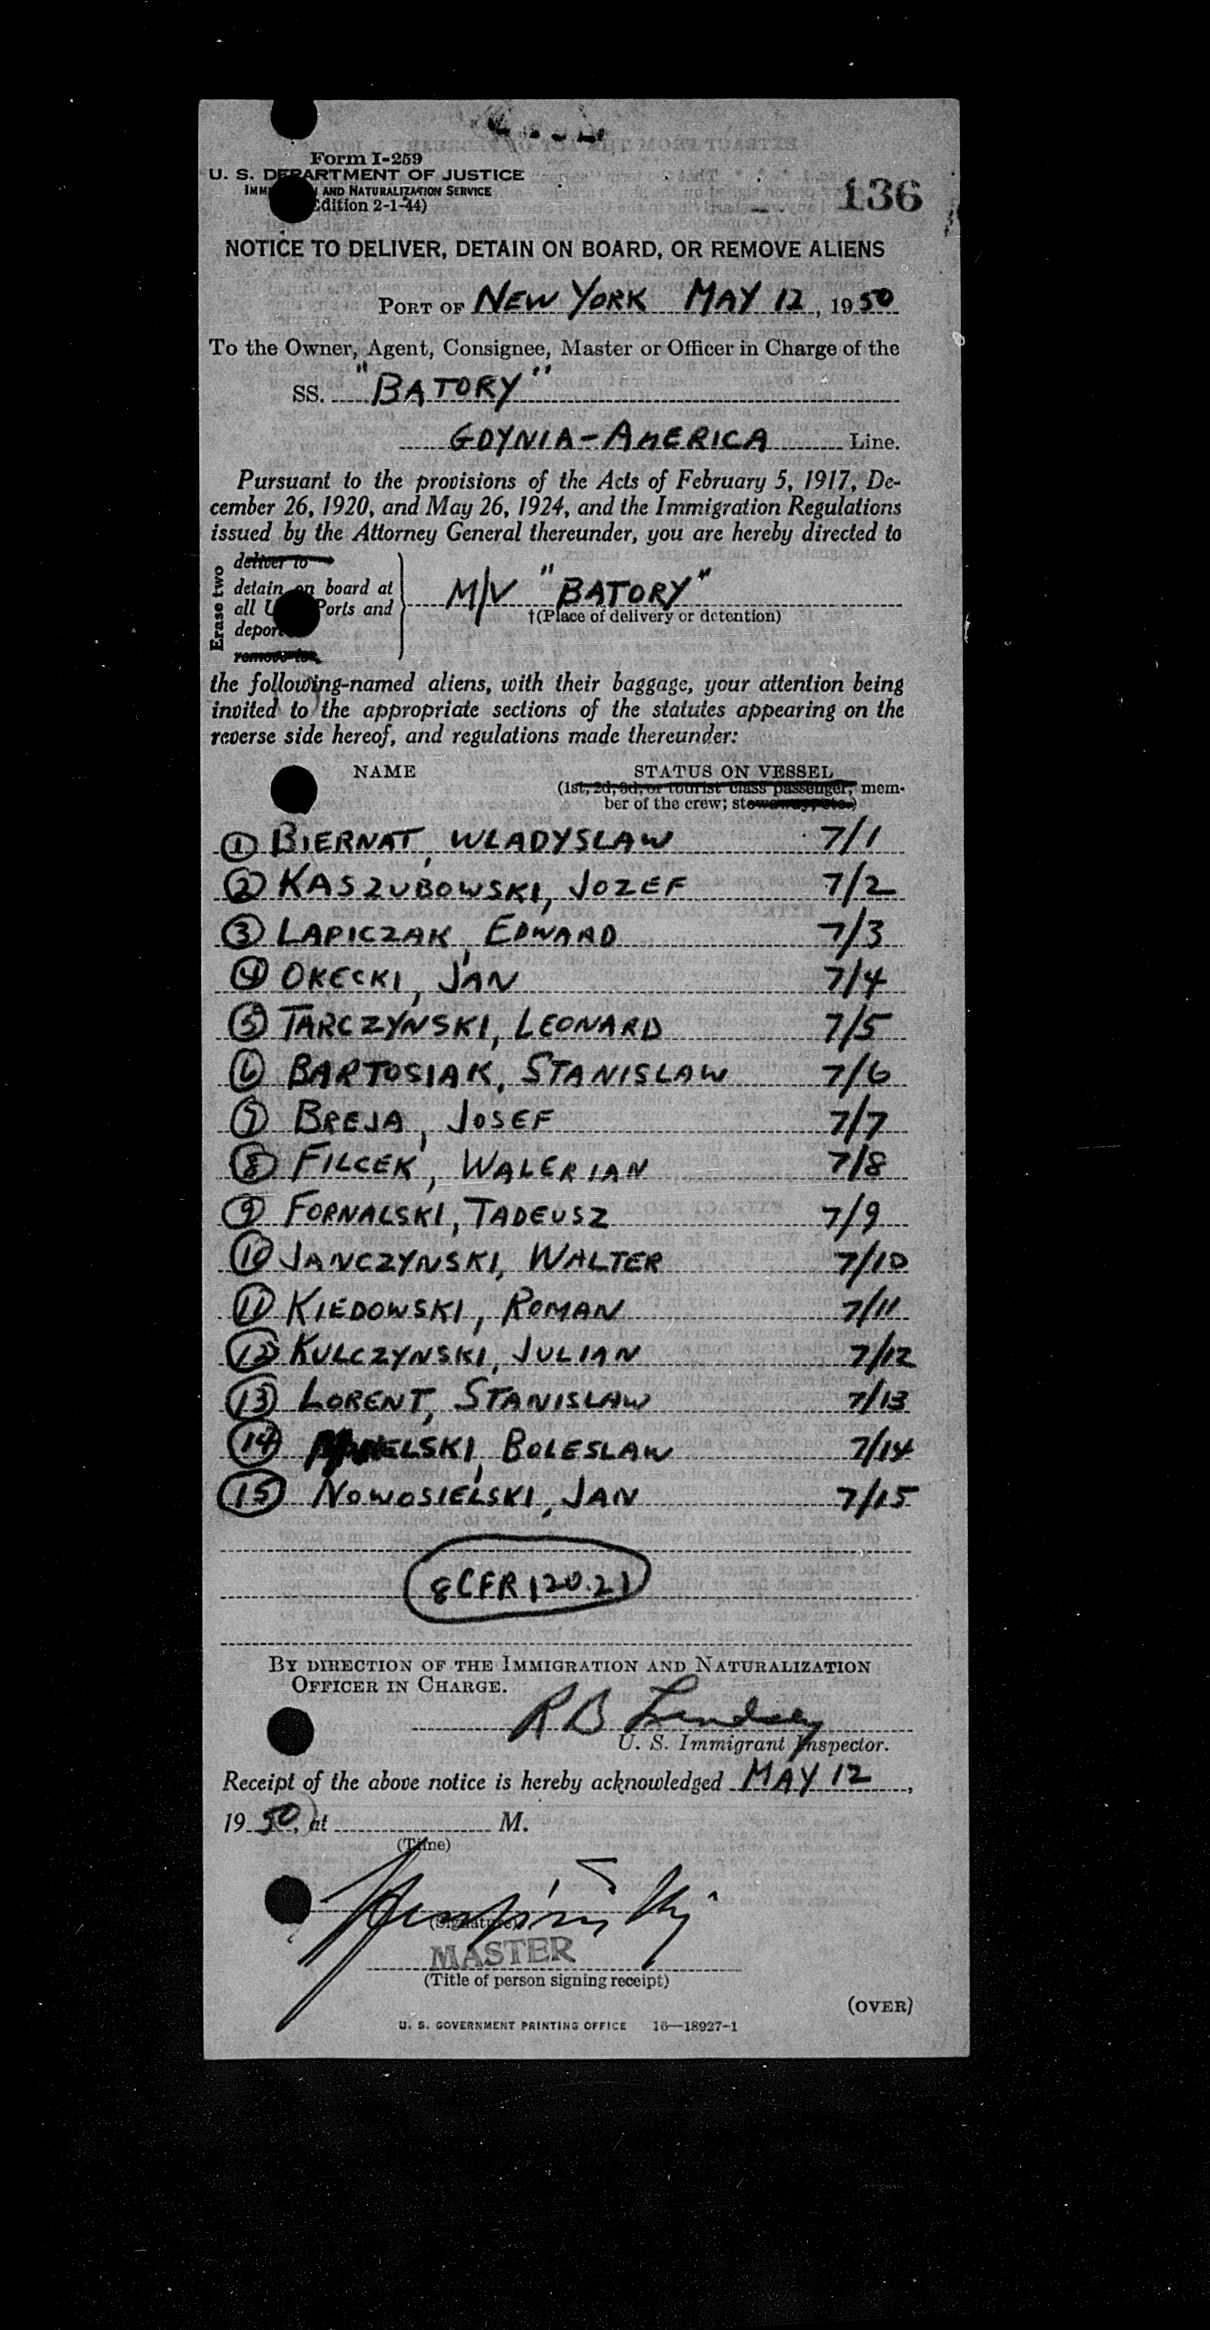 Form I-259
U. S. DEPARTMENT OF JUSTICE
IMMIGRATION AND NATURALIZATION SERVICE
(Edition 2-1-44)
136
NOTICE TO DELIVER, DETAIN ON BOARD, OR REMOVE ALIENS
PORT OF NEW YORK MAY 12, 1950
To the Owner, Agent, Consignee, Master or Officer in Charge of the
SS. "BATORY"
GDYNIA-AMERICA Line.
Pursuant to the provisions of the Acts of February 5, 1917, De-
cember 26, 1920, and May 26, 1924, and the Immigration Regulations
issued by the Attorney General thereunder, you are hereby directed to
Erase two
deliver to
detain on board at
all U. S. Ports and
deport
remove to
M/V "BATORY"
†(Place of delivery or detention)
the following-named aliens, with their baggage, your attention being
invited to the appropriate sections of the statutes appearing on the
reverse side hereof, and regulations made thereunder:
NAME STATUS ON VESSEL
(1st, 2d, 3d, or tourist class passenger, mem-
ber of the crew; stowaway, etc.)
1 BIERNAT, WLADYSLAW 7/1
2 KASZUBOWSKI, JOZEF 7/2
3 LAPICZAK, EDWARD 7/3
4 OKECKI, JAN 7/4
5 TARCZYNSKI, LEONARD 7/5
6 BARTOSIAK, STANISLAW 7/6
7 BREJA, JOSEF 7/7
8 FILCEK, WALERIAN 7/8
9 FORNALSKI, TADEUSZ 7/9
10 JANCZYNSKI, WALTER 7/10
11 KIEDOWSKI, ROMAN 7/11
12 KULCZYNSKI, JULIAN 7/12
13 LORENT, STANISLAW 7/13
14 BOLESLAW 7/14
15 NOWOSIELSKI, JAN 7/15
8CFR 120.21
BY DIRECTION OF THE IMMIGRATION AND NATURALIZATION
OFFICER IN CHARGE.
R B Lindsey
U. S. Immigrant Inspector.
Receipt of the above notice is hereby acknowledged MAY 12,
1950, at M.
(Time)
(Signature)
MASTER
(Title of person signing receipt)
(OVER)
U. S. GOVERNMENT PRINTING OFFICE 16—18927-1